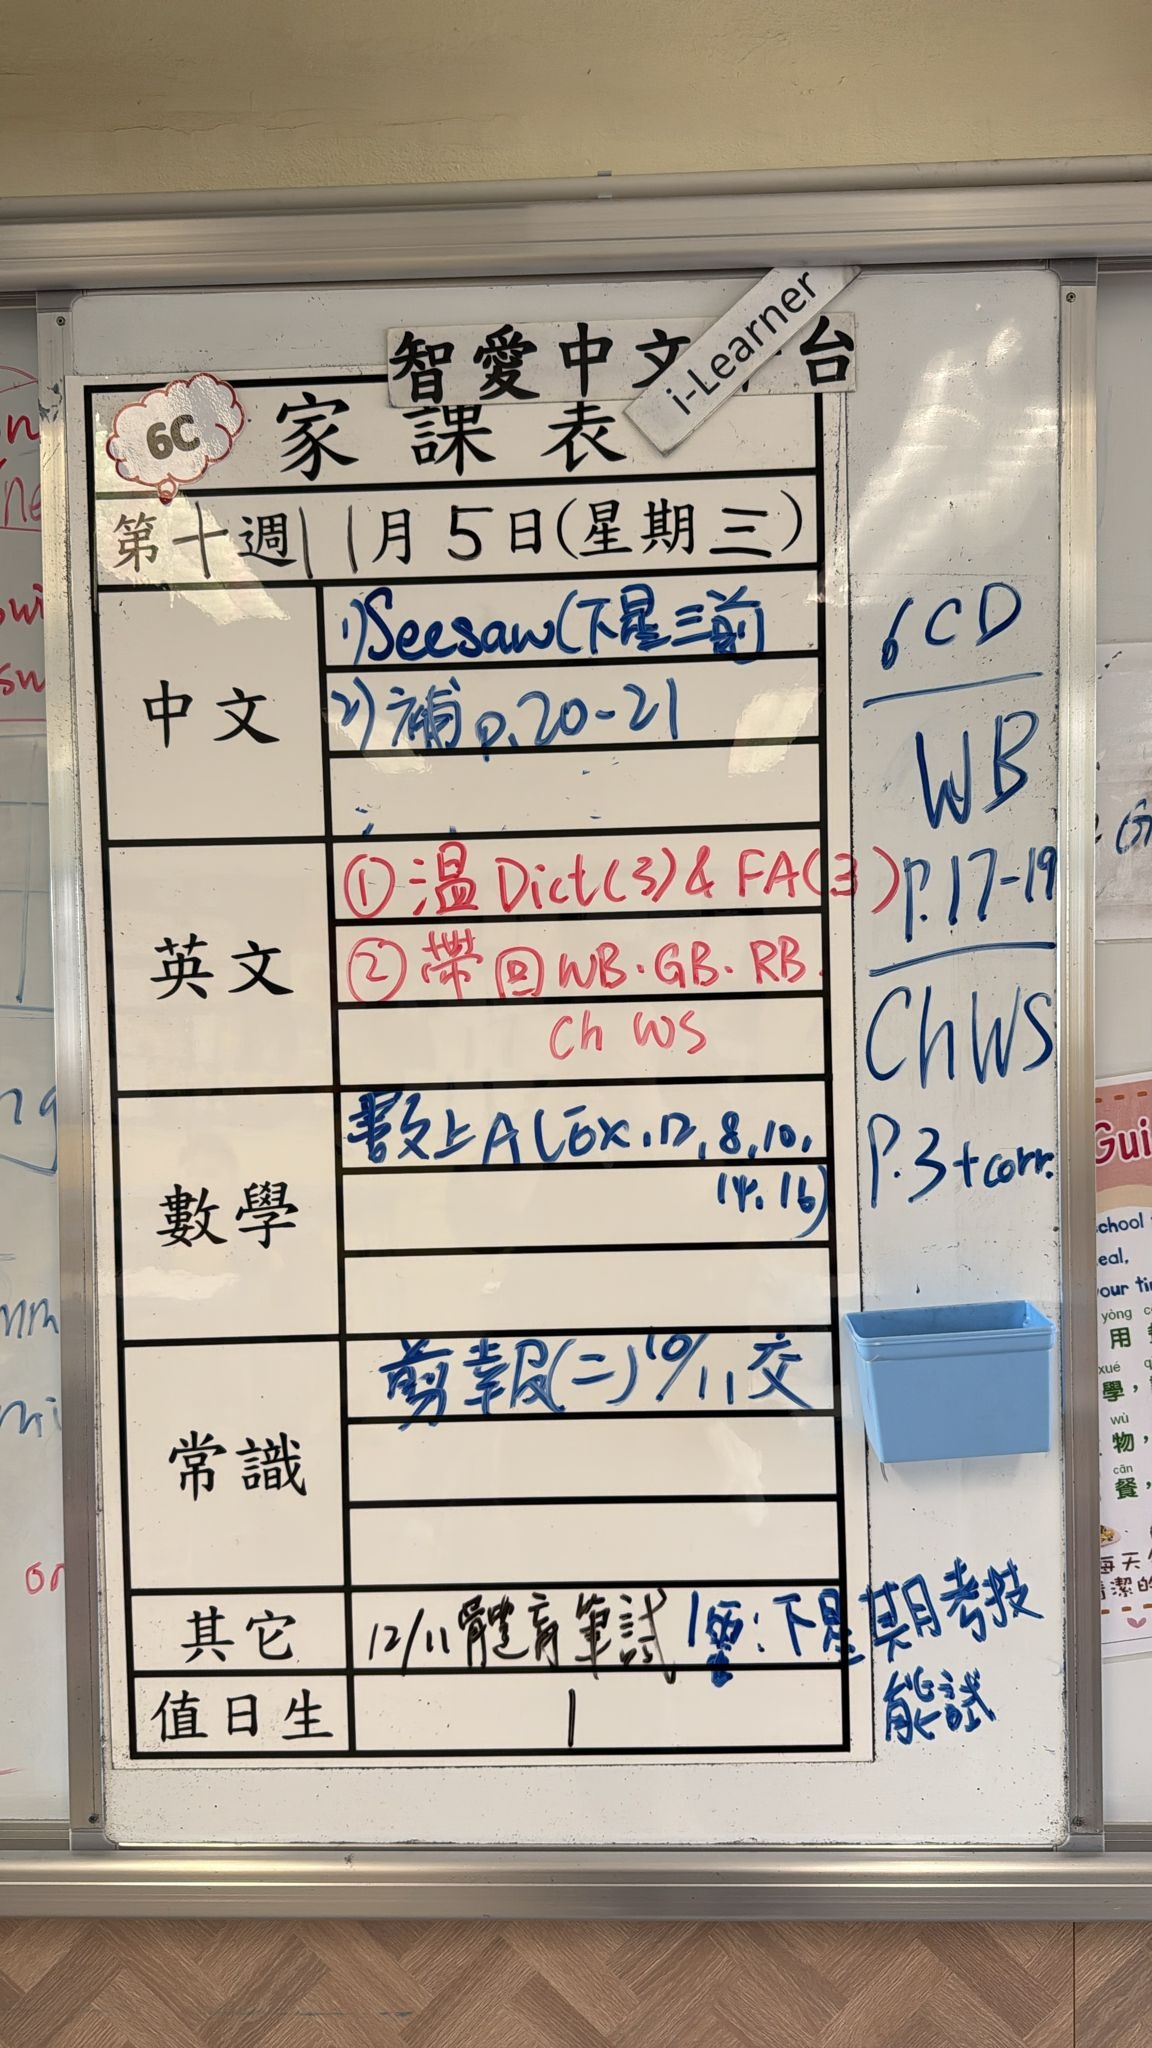 智愛中文
台
i-Learner
6C
家課表
第十週 11月5日(星期三)
中文
1)Seesaw(下星三前
2)補p.20-21
英文
①溫Dict(3)& FA(3)
②帶回WB.GB.RB.
Ch WS
數學
數上A(Ex.12,8,10,
14,16)
常識
剪報(二)10/11交
其它
12/11體育筆試
下星期考技
能試
值日生
1
6CD
WB
P.17-19
Ch WS
P.3+corr.
Gui
chool
eal,
our ti
yòng
用
xué
學,
wù
物,
cān
餐,
每天
清潔的